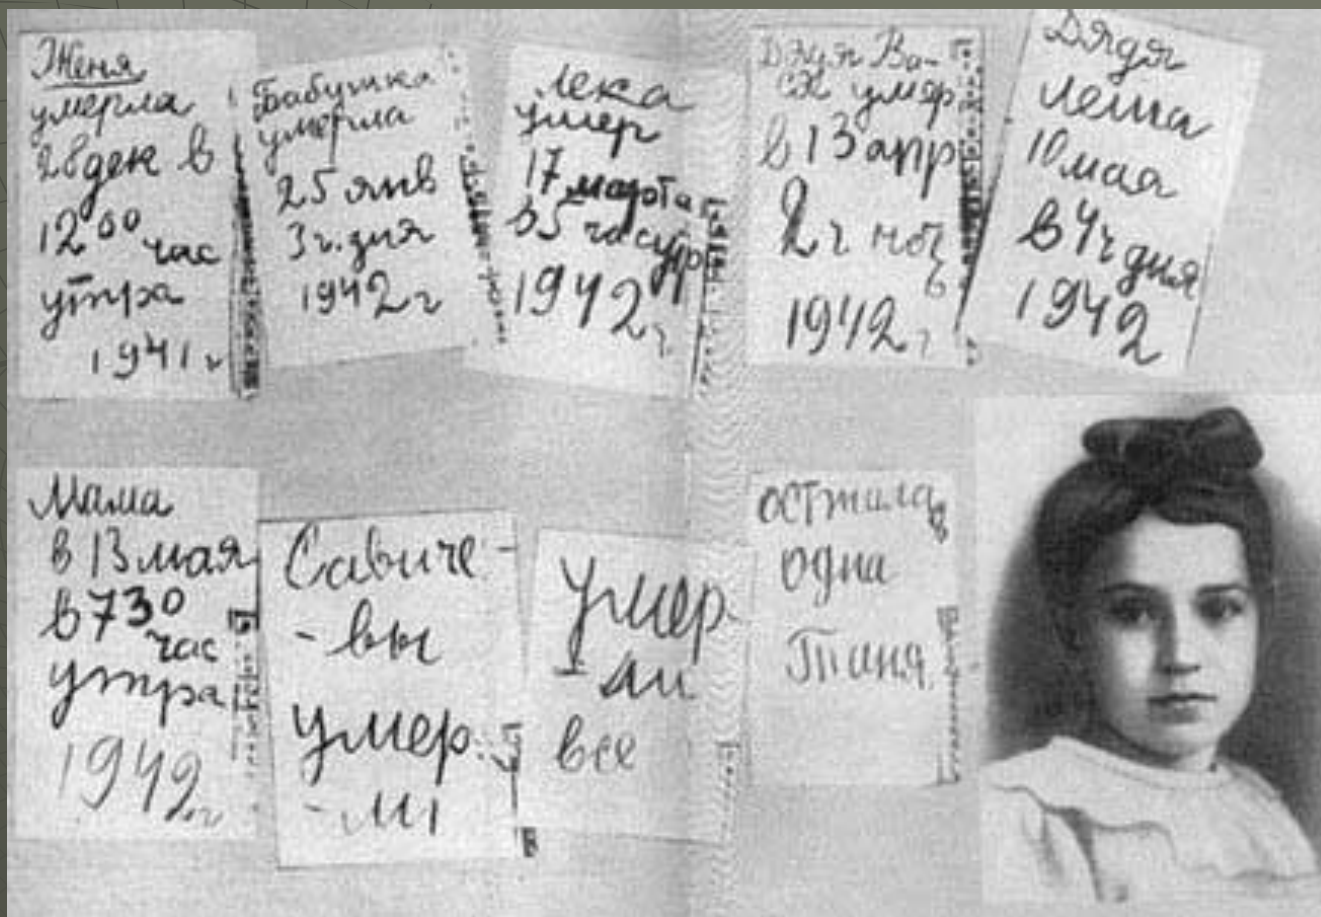 Женя
умерла
28 дек в
12 00 час
утра
1941 г
Бабушка
умерла
25 янв
3 ч. дня
1942 г
Лека
умер
17 марта
в 5 час утр
1942 г.
Дядя Ва-
ся умер
в 13 апр
2 ч ноч
ь
1942 г
Дядя
Леша
10 мая
в 4 ч дня
1942
Мама
в 13 мая
в 7 30
час
утра
1942 г
Савиче-
-вы
умер
-ли
Умер-
-ли
все
осталась
одна
Таня